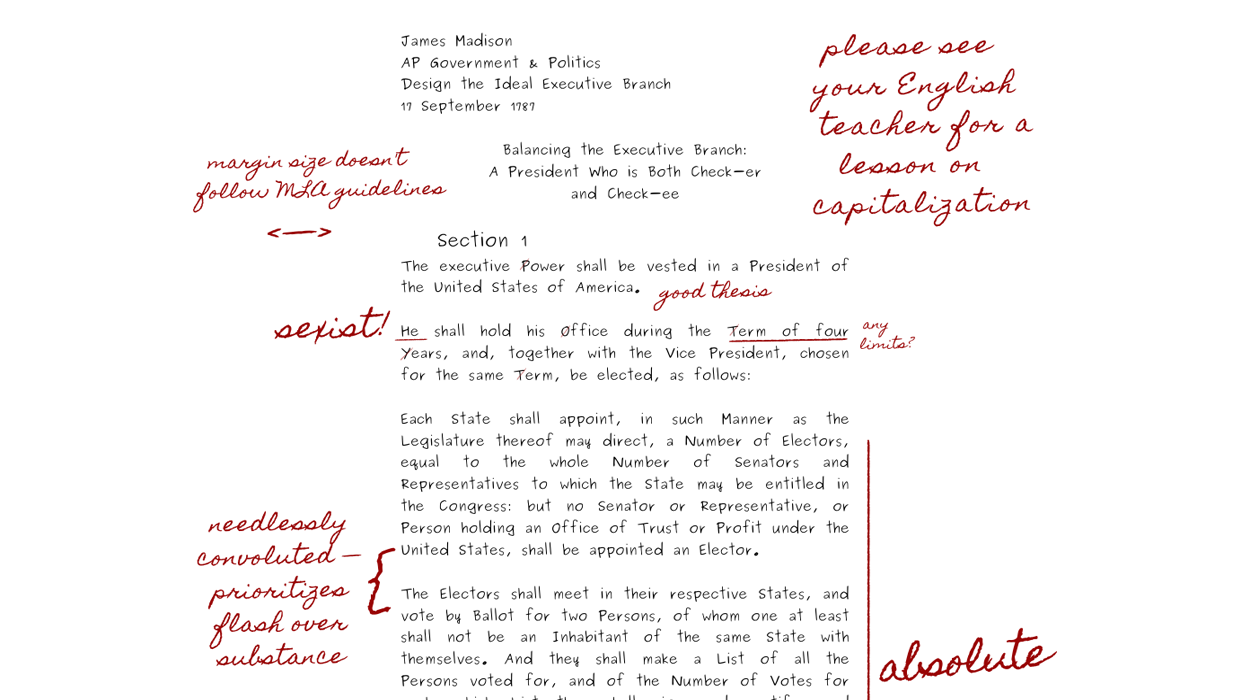 James Madison
AP Government & Politics
Design the Ideal Executive Branch
17 September 1787
please see
your English
teacher for a
lesson on
capitalization
Balancing the Executive Branch:
A President Who is Both Check-er
and Check-ee
margin size doesn't
follow MLA guidelines
Section 1
The executive Power shall be vested in a President of
the United States of America.
good thesis
sexist!
He shall hold his Office during the Term of four
Years, and, together with the Vice President, chosen
for the same Term, be elected, as follows:
any
limits?
Each State shall appoint, in such Manner as the
Legislature thereof may direct, a Number of Electors,
equal to the whole Number of Senators and
Representatives to which the State may be entitled in
the Congress: but no Senator or Representative, or
Person holding an Office of Trust or Profit under the
United States, shall be appointed an Elector.
needlessly
convoluted —
prioritizes
flash over
substance
The Electors shall meet in their respective States, and
vote by Ballot for two Persons, of whom one at least
shall not be an Inhabitant of the same State with
themselves. And they shall make a List of all the
Persons voted for, and of the Number of Votes for
absolute